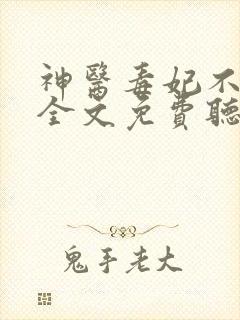 神醫毒妃不
全文免費聽
鬼手老大